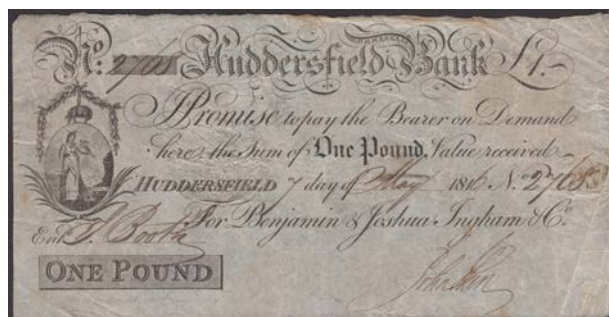 No. Huddersfield Bank £1.-
I Promise to pay the Bearer on Demand
here the Sum of One Pound, Value received
HUDDERSFIELD 7 day of May 1816 No. 2768
For Benjamin & Joshua Ingham & Co.
Entd. J. Booth
ONE POUND